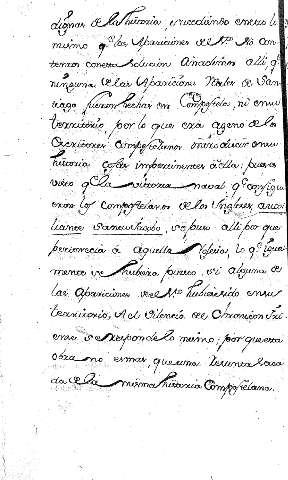 dignas de la historia, sucediendo en esto lo
mismo q.e las Apariciones de N.
con esta solucion Anadimos alli q.e
ninguna de las Apariciones de San-
tiago fueron hechas en Compostela, ni en su
territorio, por lo que era ageno de los
Escritores Compostelanos en su
historia cosas impertinentes á ella; pues
q.e la victoria naval q.e consigui
eron los Compostelanos de los Ingleses auxi
liante se puso alli por que
pertenecia á aquella Iglesia, lo q.e igual
mente se hubiera puesto si alguna de
las Apariciones de hubiera sido en su
territorio, Al Silencio de Chronicon Iri
ense se responde lo mismo; por que esta
obra no es mas, que una saca
da de la misma historia Compostelana.